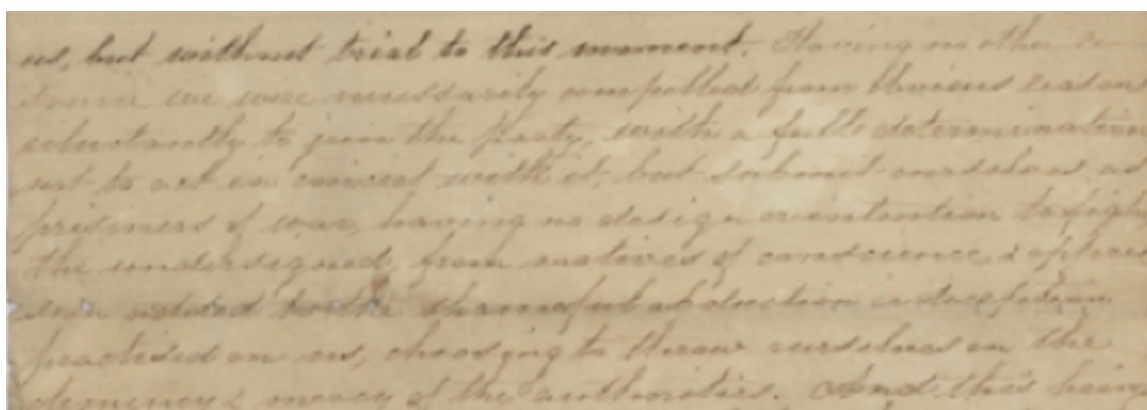 us, but without trial to this moment. Having no other
we were necessarily compelled from obvious reason
reluctantly to join the party, with a full determination
not to act in concert with it, but submit ourselves as
prisoners of war, having no design or intention to fight
the undersigned, from motives of conscience &
added to the shameful abduction & deception
practised on us, choosing to throw ourselves on the
clemency & mercy of the authorities. And this being